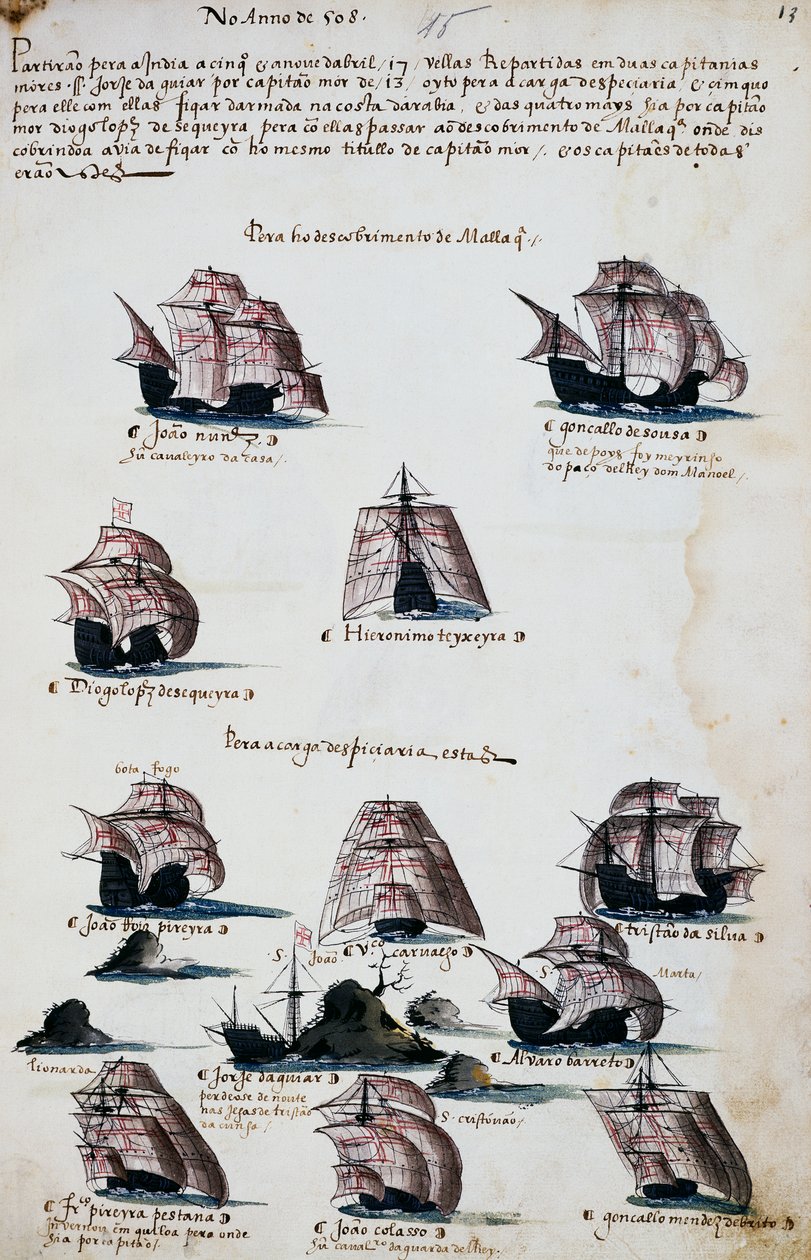 No Anno de 508.
15
13
Partirão pera a India a cinqº & a nove dabril / 17 / vellas Repartidas em duas capitanias
mores . ss. Jorje da guiar por capitão mór de / 13 / oyto pera a carga despeciaria, & cimquo
pera elle com ellas fiqar darmada na costa darabia, & das quatro mays hia por capitão
mor diogo lopz de sequeyra pera cõ ellas passar ao descobrimento de Mallaqª onde, des
cobrindo a avia de fiqar cõ ho mesmo titullo de capitão mór /. & os capitães de todas
erão
Pera ho descobrimento de Mallaqª. /.
João nunz.
hũ cavaleyro da casa /.
goncallo de sousa
que depoys foy meyrinho
do paço delRey dom Manoel /.
Hieronimo teyxeyra
Diogo lopz desequeyra
Pera a carga despiçiaria estas
bota fogo
João pireyra
S. João
Vco carvalho
tristão da silva
S. Marta /
Alvaro barreto
lionarda
Jorje daguiar
perdeose de noute
nas Jlhas de tristão
da cunha /
S. cristóvão /.
Frco pireyra pestana
Jnvernou em quiloa pera onde
hia por capitão /
João colasso
hũ cavalro da guarda delRey.
goncallo mendez debrito